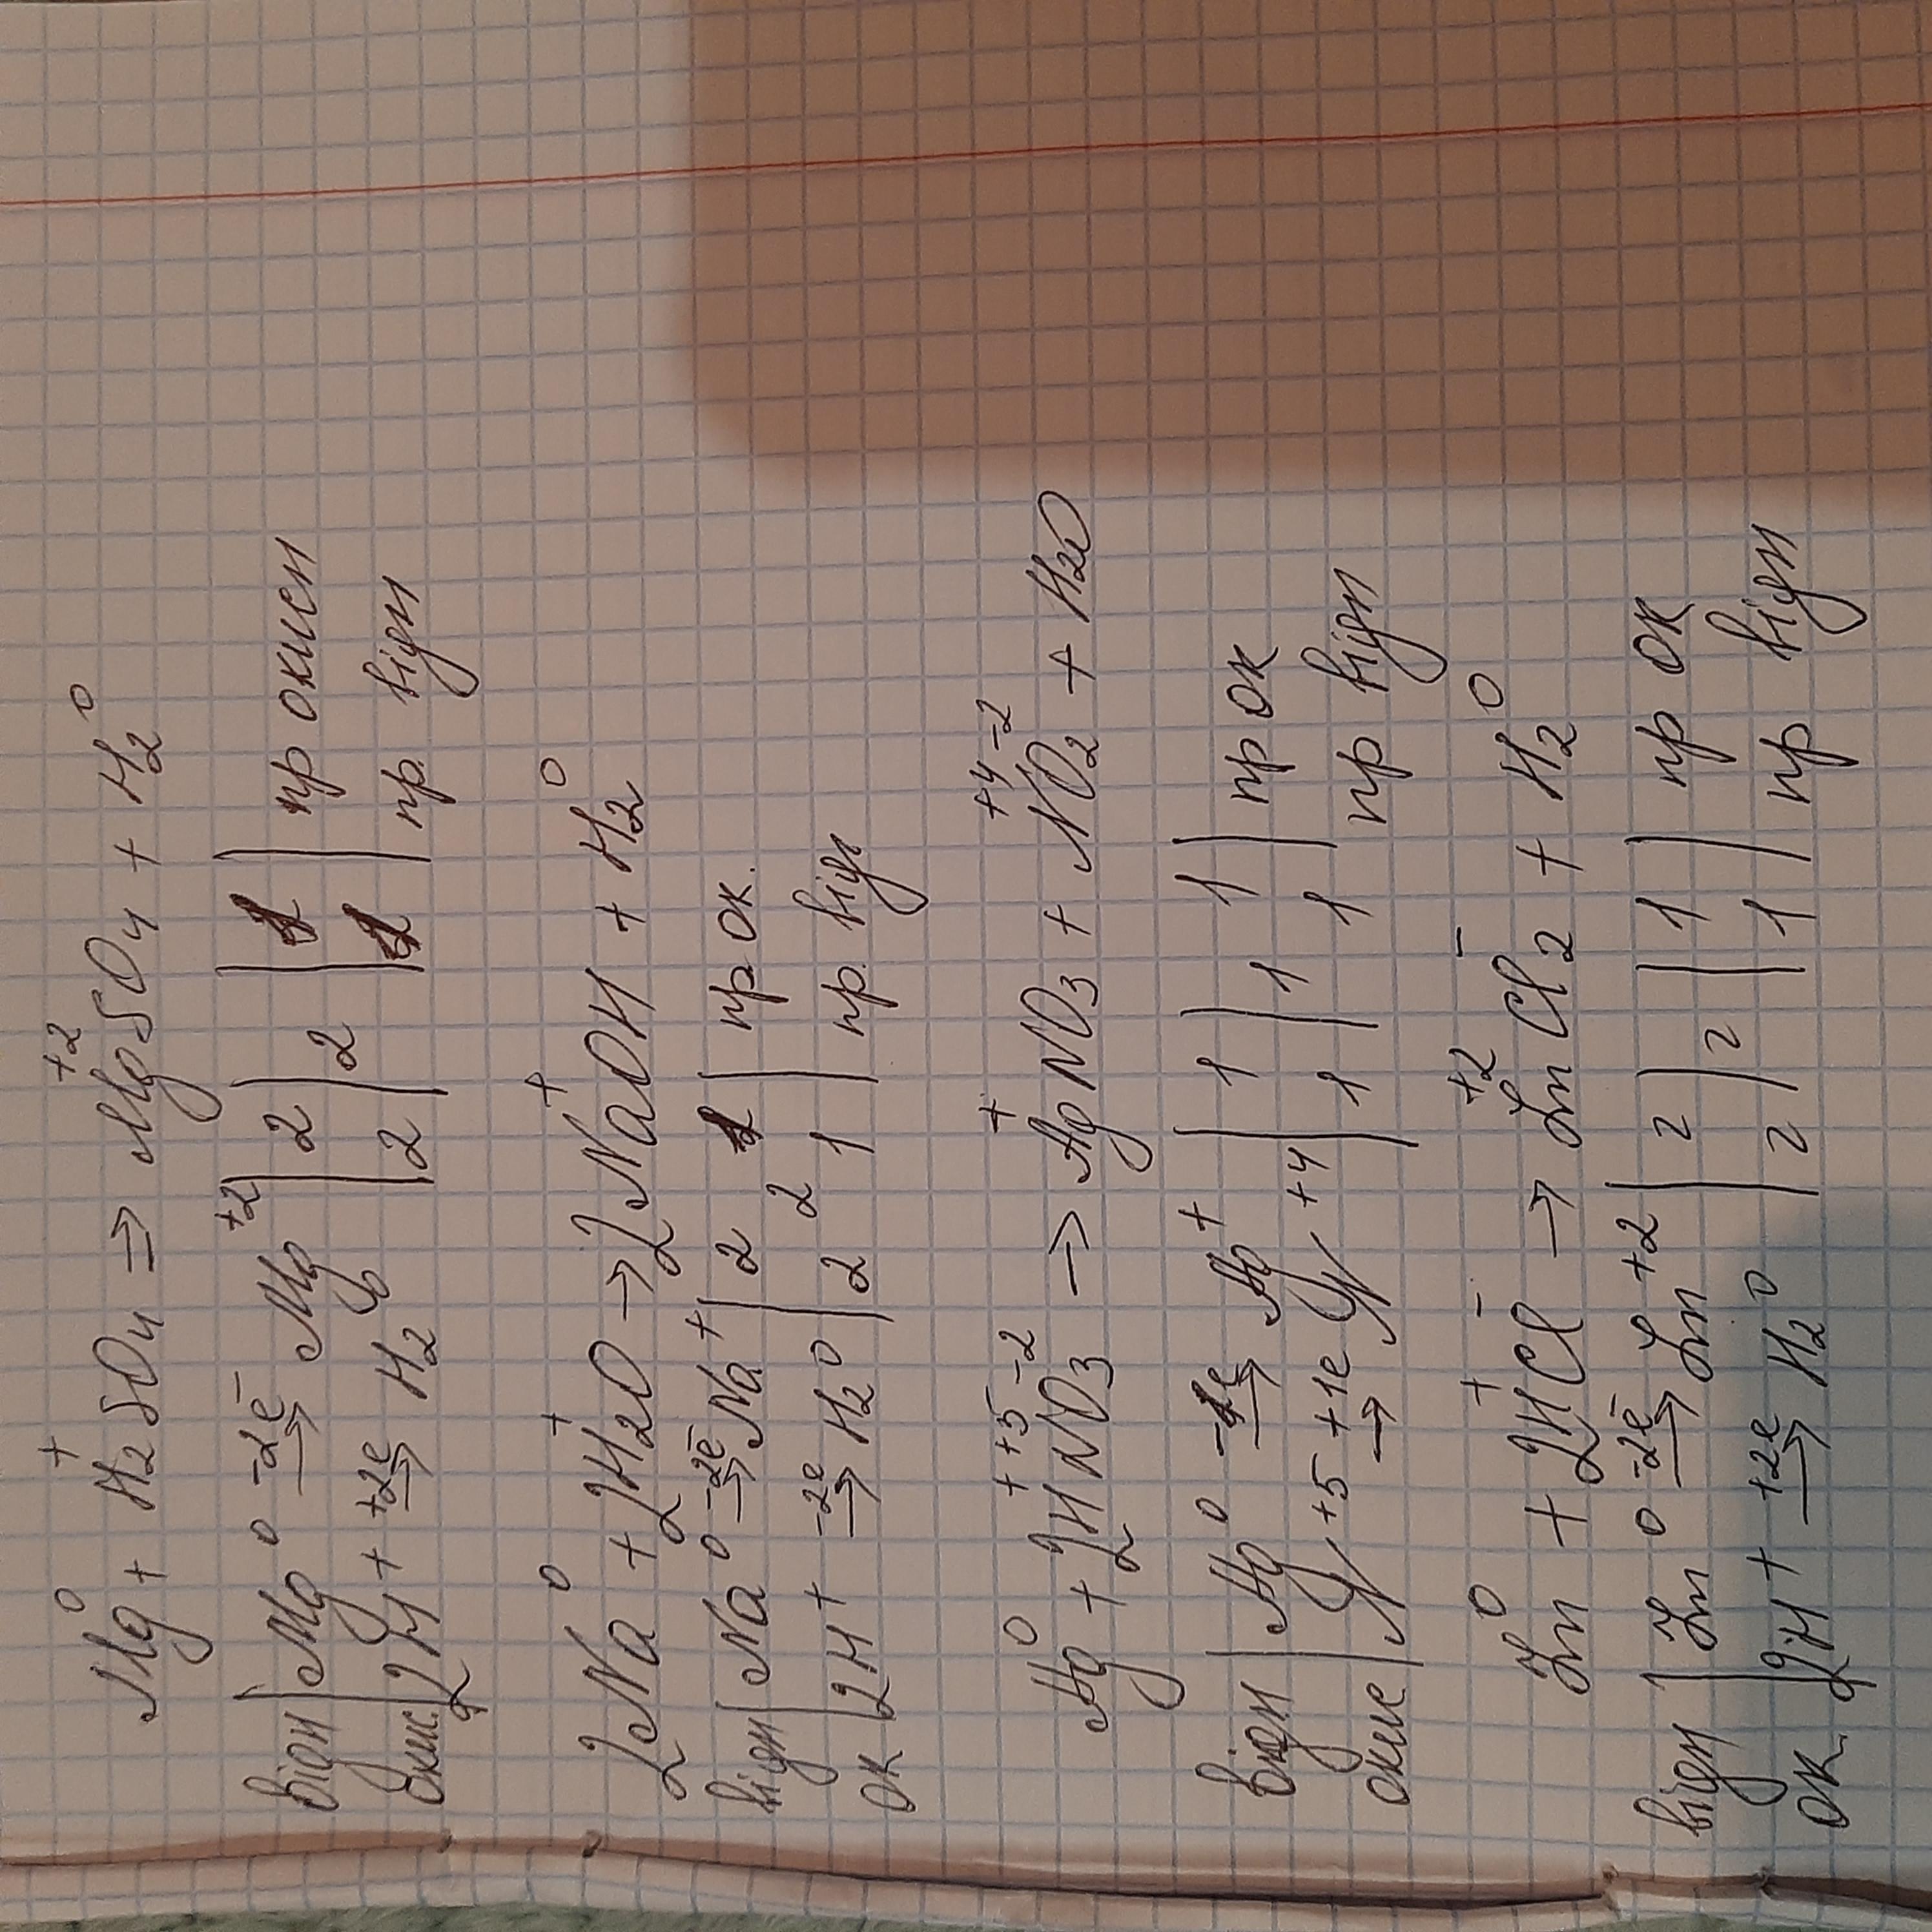 Mg⁰ + H₂⁺SO₄ => Mg⁺²SO₄ + H₂⁰
відн | Mg⁰ -2e⁻→ Mg⁺² | 2 | 2 | 1 | пр окисн
Окис. | 2H⁺ +2e→ H₂⁰ | 2 | 2 | 1 | пр. відн
2Na⁰ + 2H₂⁺O → 2Na⁺OH + H₂⁰
відн | Na⁰ -2e⁻→ Na⁺ | 2 2 1 | пр ок.
ок | 2H⁺ -2e→ H₂⁰ | 2 1 | пр. відн
Ag⁰ + 2H⁺N⁺⁵O₃⁻² → Ag⁺NO₃ + N⁺⁴O₂⁻² + H₂O
відн | Ag⁰ -1e→ Ag⁺ | 1 | 1 1 | пр ок
окис | N⁺⁵ +1e→ N⁺⁴ | 1 | 1 | пр відн
Zn⁰ + 2H⁺Cl⁻ → Zn⁺²Cl₂⁻ + H₂⁰
відн | Zn⁰ -2e⁻→ Zn⁺² | 2 | 2 | 1 | пр ок
ок. 2H⁺ +2e→ H₂⁰ | 2 | 1 | пр відн